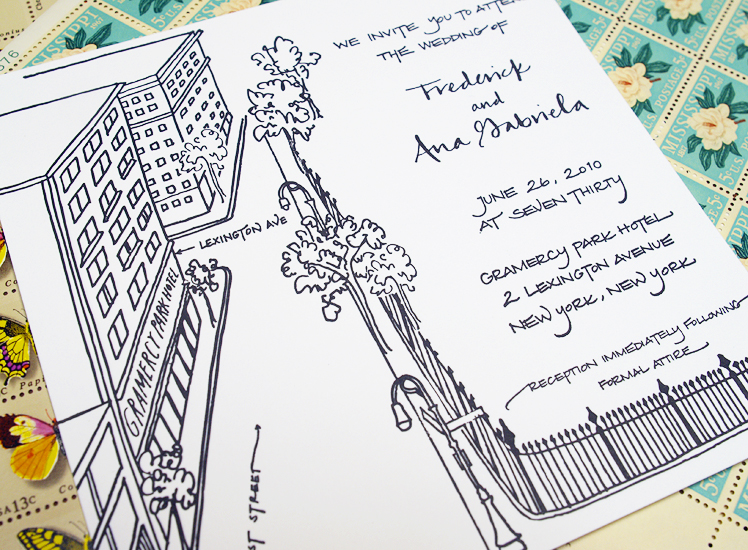 WE INVITE YOU TO ATTEN
THE WEDDING OF
Frederick
and
Ana Gabriela
JUNE 26, 2010
AT SEVEN THIRTY
GRAMERCY PARK HOTEL
2 LEXINGTON AVENUE
NEW YORK, NEW YORK
RECEPTION IMMEDIATELY FOLLOWING
FORMAL ATTIRE
LEXINGTON AVE
GRAMERCY PARK HOTEL
ST STREET
MISSISSIPPI
POSTAGE 5¢
USA 13c